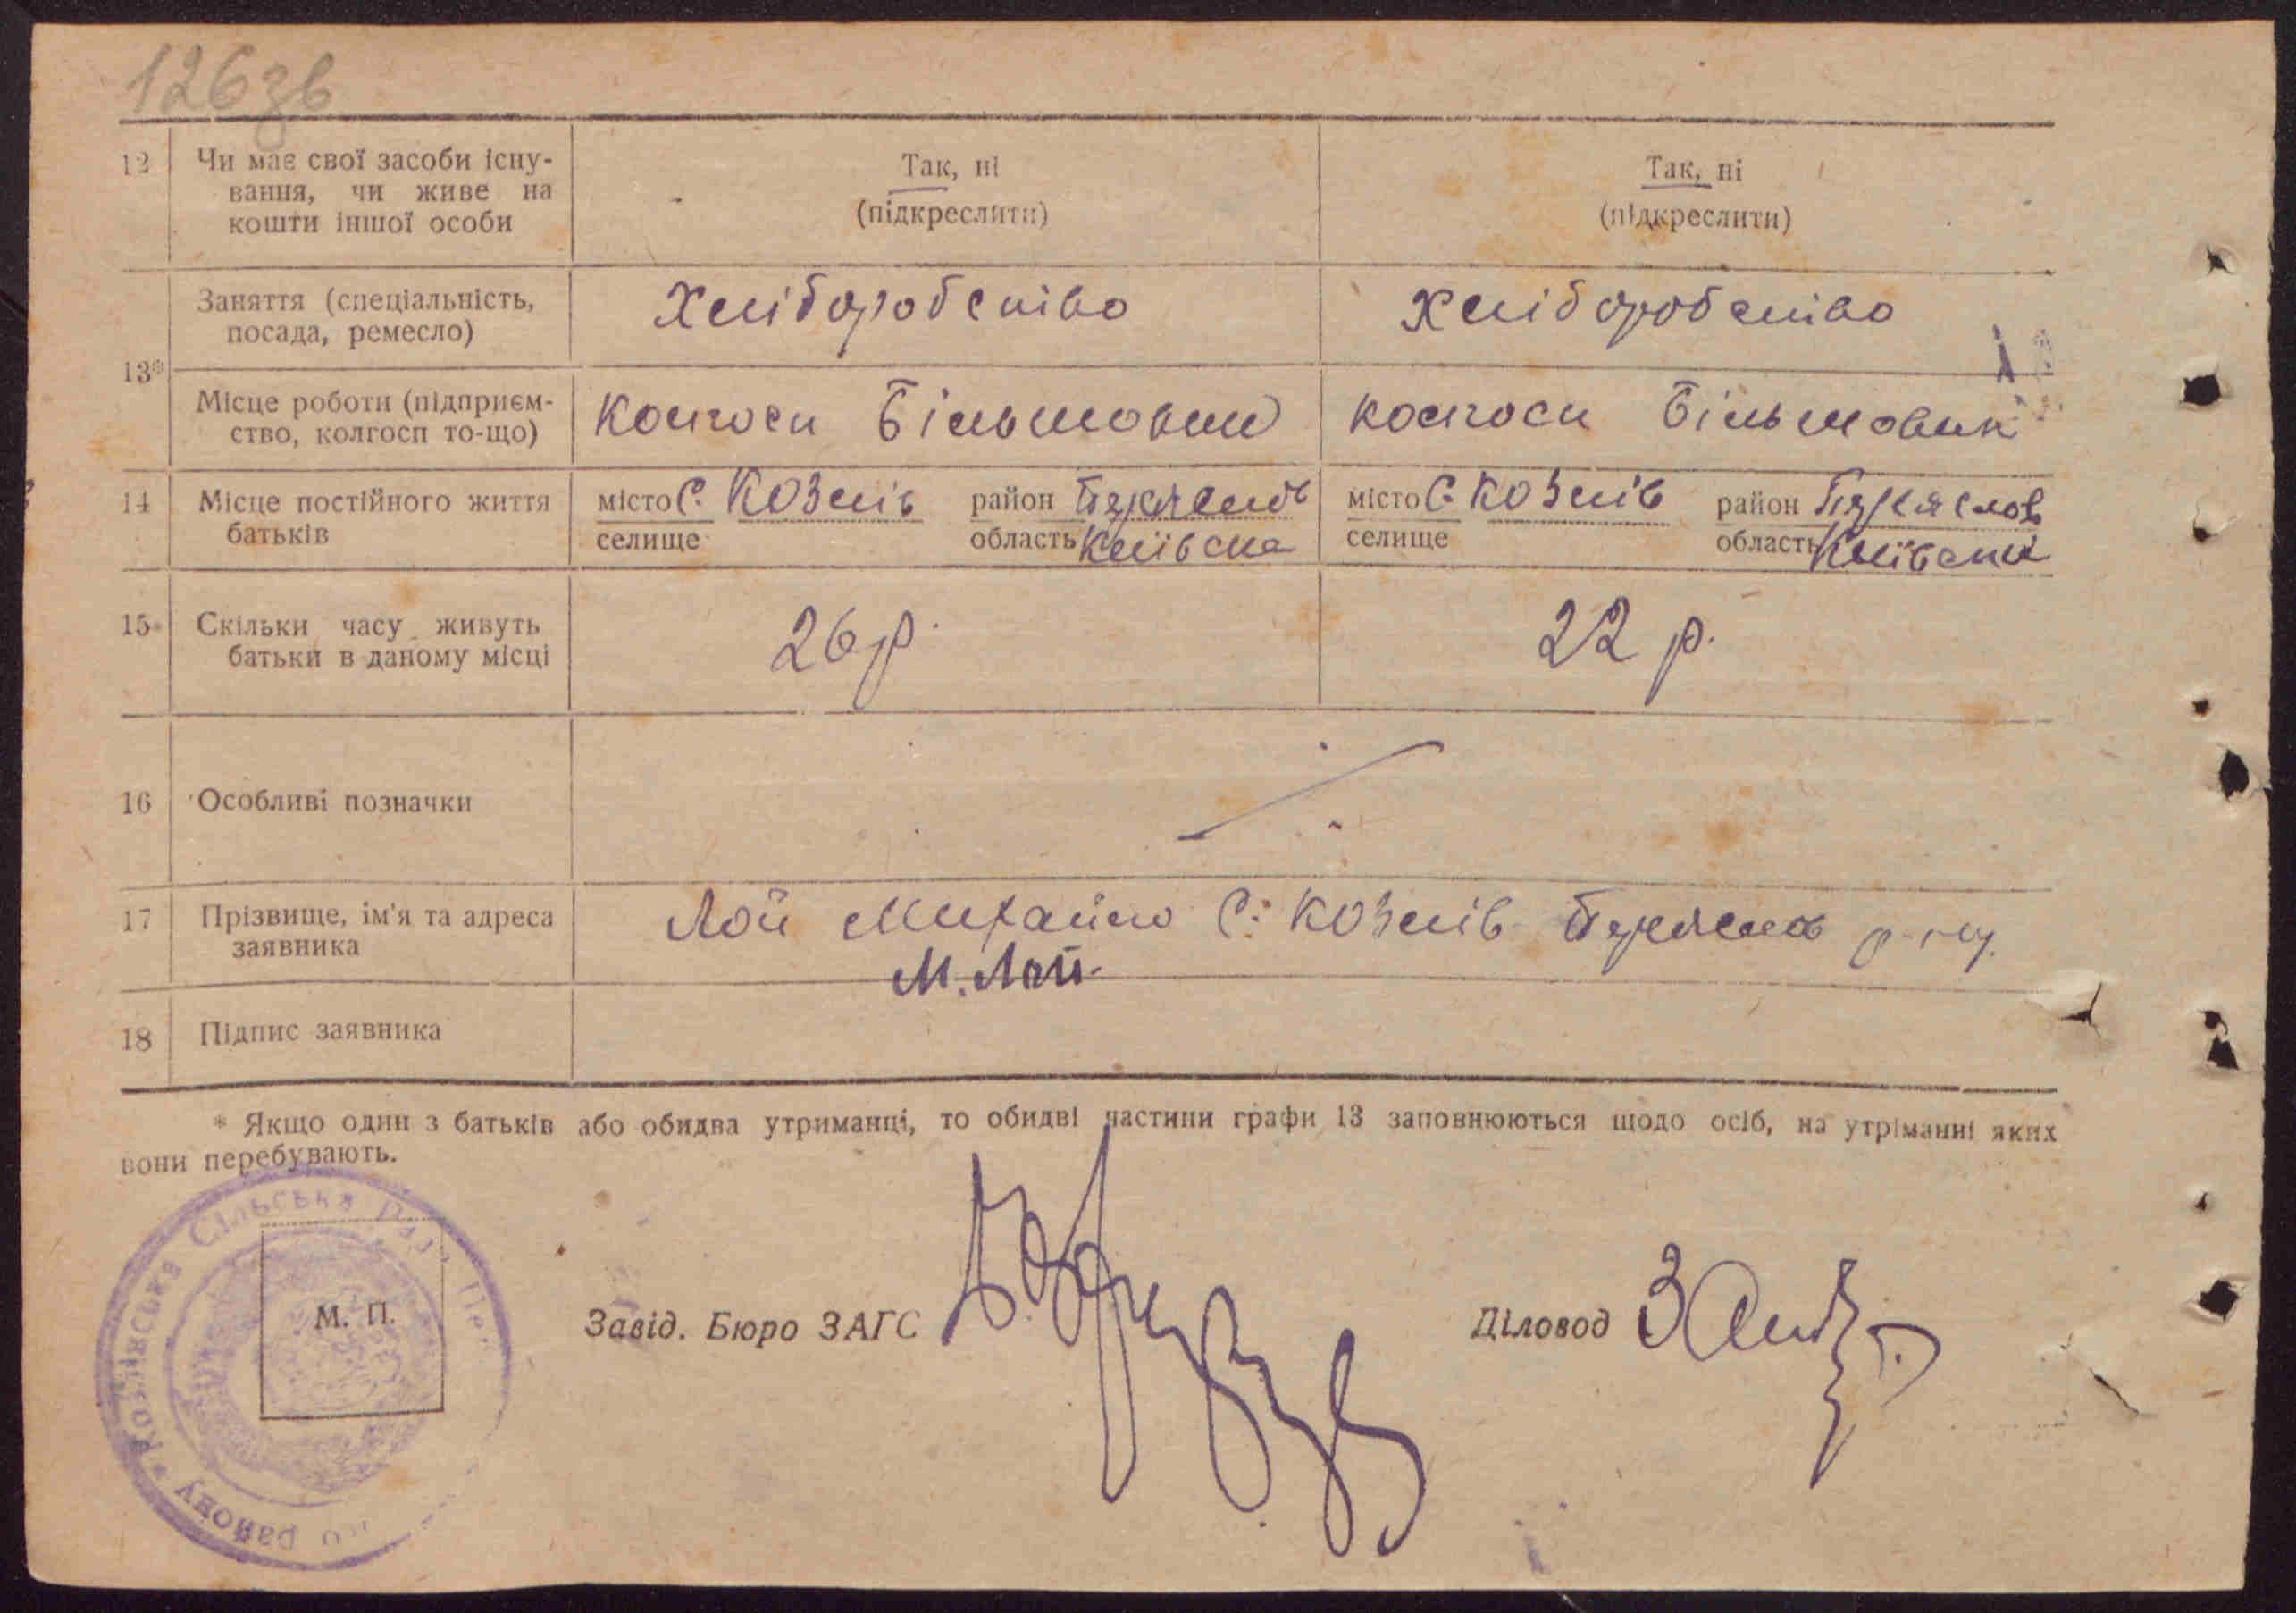 126зв
12 Чи має свої засоби існу-
вання, чи живе на
кошти іншої особи
Так, ні
(підкреслити)
Так, ні
(підкреслити)
13*
Заняття (спеціальність,
посада, ремесло)
Хліборобство
Хліборобство
Місце роботи (підприєм-
ство, колгосп то-що)
Колгосп Більшовик
Колгосп Більшовик
14 Місце постійного життя
батьків
місто С. Козлів район Переяслов
селище область Київська
місто С. Козлів район Переяслов
селище область Київська
15* Скільки часу живуть
батьки в даному місці
26 р.
22 р.
16 Особливі позначки
17 Прізвище, ім'я та адреса
заявника
Лой Михайло С. Козлів Переяслов р-ну.
М. Лой
18 Підпис заявника
* Якщо один з батьків або обидва утриманці, то обидві частини графи 13 заповнюються щодо осіб, на утріманні яких
вони перебувають.
Козлівська Сільська Рада
району
М. П.
Завід. Бюро ЗАГС
Діловод